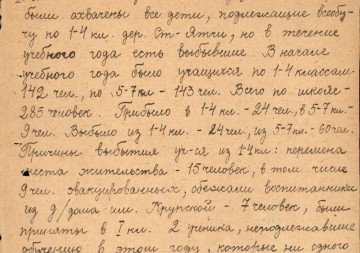 были охвачены все дети, подлежащие всеобу-
чу по 1-4 кл. дер. Ст-Ятчи, но в течение
учебного года есть выбывшие. В начале
учебного года было учащихся по 1-4 классам-
142 чел., по 5-7 кл - 143 чел. Всего по школе-
285 человек. Прибыло в 1-4 кл. - 24 чел, в 5-7 кл.-
9 чел. Выбыло из 1-4 кл. - 24 чел, из 5-7 кл. - 60 чел.
Причины выбытия уч-ся из 1-4 кл: перемена
места жительства - 15 человек, в том числе
9 чел. эвакуированных, сбежали воспитанники
из д/дома им. Крупской - 7 человек, были
приняты в I кл. 2 ученика, неподлежавшие
обучению в этом году, которые ни одного